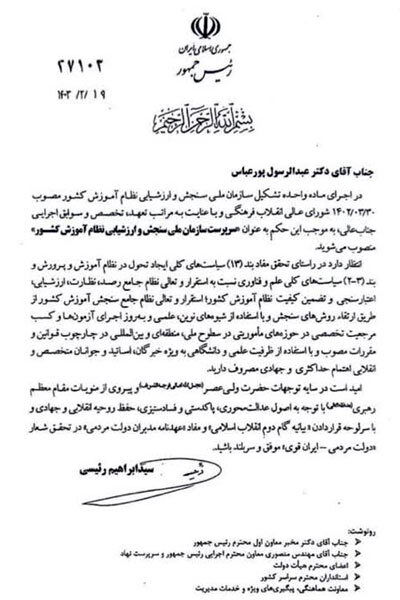 جمهوری اسلامی ایران
رئیس جمهور
۲۷۱۰۲
۱۴۰۳/۲/۱۹
بسم الله الرحمن الرحیم
جناب آقای دکتر عبدالرسول پورعباس
در اجرای ماده واحده تشکیل سازمان ملی سنجش و ارزشیابی نظام آموزش کشور مصوب
۱۴۰۲/۰۳/۳۰ شورای عالی انقلاب فرهنگی و با عنایت به مراتب تعهد، تخصص و سوابق اجرایی
جنابعالی، به موجب این حکم به عنوان «سرپرست سازمان ملی سنجش و ارزشیابی نظام آموزش کشور»
منصوب می‌شوید.
انتظار دارد در راستای تحقق مفاد بند (۱۳) سیاست‌های کلی ایجاد تحول در نظام آموزش و پرورش و
بند (۳-۲) سیاست‌های کلی علم و فناوری نسبت به استقرار و تعالی نظام جامع رصد، نظارت، ارزشیابی،
اعتبارسنجی و تضمین کیفیت نظام آموزش کشور؛ استقرار و تعالی نظام جامع سنجش آموزش کشور از
طریق ارتقاء روش‌های سنجش و با استفاده از شیوه‌های نوین، علمی و به‌روز اجرای آزمون‌ها و کسب
مرجعیت تخصصی در حوزه‌های مأموریتی در سطوح ملی، منطقه‌ای و بین‌المللی در چارچوب قوانین و
مقررات مصوب و با استفاده از ظرفیت علمی و دانشگاهی به ویژه خبرگان، اساتید و جوانان متخصص و
انقلابی اهتمام حداکثری و جهادی مصروف دارید.
امید است در سایه توجهات حضرت ولی‌عصر و پیروی از منویات مقام معظم
رهبری با توجه به اصول عدالت‌محوری، پاکدستی و فسادستیزی، حفظ روحیه انقلابی و جهادی و
با سرلوحه قراردادن «بیانیه گام دوم انقلاب اسلامی» و مفاد «عهدنامه مدیران دولت مردمی» در تحقق شعار
«دولت مردمی – ایران قوی» موفق و سربلند باشید.
سیدابراهیم رئیسی
رونوشت:
جناب آقای دکتر مخبر معاون اول محترم رئیس جمهور
جناب آقای مهندس منصوری معاون محترم اجرایی رئیس جمهور و سرپرست نهاد
اعضای محترم هیأت دولت
استانداران محترم سراسر کشور
معاونت هماهنگی، پیگیری‌های ویژه و خدمات مدیریت